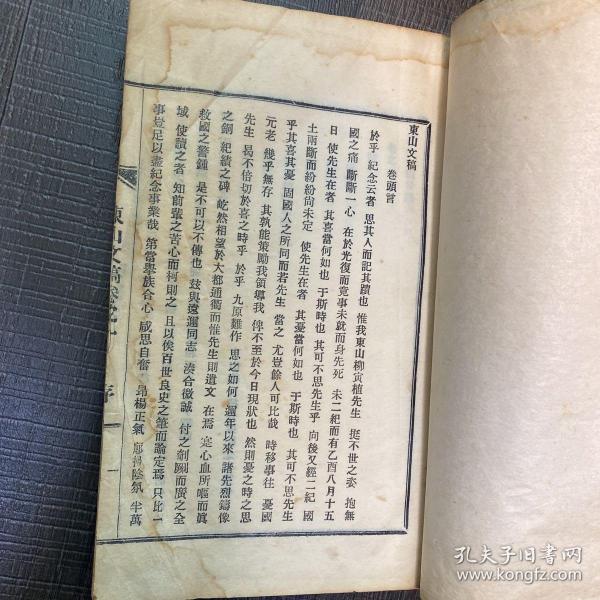 東山文稿
卷頭言
於乎 紀念云者 思其人而記其蹟也 惟我東山柳寅植先生 挺不世之姿 抱無
國之痛 斷斷一心 在於光復而竟事未就而身先死 未二紀而有乙酉八月十五
日 使先生在者 其喜當何如也 于斯時也 其可不思先生乎 向後又經二紀 國
土兩斷而紛紛尙未定 使先生在者 其憂當何如也 于斯時也 其可不思先生
乎其喜其憂 固國人之所同而若先生 當之 尤豈餘人可比哉 時移事往 憂國
元老 幾乎無存 其孰能策勵我領導我 俾不至於今日現狀也 然則憂之時之思
先生 曷不倍切於喜之時乎 於乎 九原難作 思之如何 邇年以來 諸先烈鑄像
之銅 紀績之碑 屹然相望於大都通衢而惟先生則遺文 在焉 寔心血所嘔而眞
救國之警鍾 是不可以不傳也 玆與遠邇同志 湊合微誠 付之剞劂而廣之全
域 使讀之者 知前輩之苦心而柯則之 且以俟百世良史之筆而論定焉 只比一
事豈足以盡紀念事業哉 第當擧族合心 咸思自奮 昂揚正氣 廓掃陰氛 半萬
東山文稿卷之一 序 一
孔夫子旧书网
www.kongfz.com